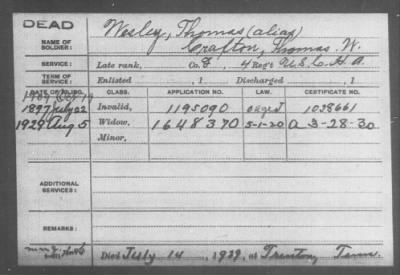 DEAD
NAME OF SOLDIER: Wesley, Thomas (alias)
Crafton, Thomas. W.
SERVICE: Late rank, Co. F, 4 Reg't U.S.C.H.A.
TERM OF SERVICE: Enlisted , 1 Discharged , 1
DATE OF FILING. CLASS. APPLICATION NO. LAW. CERTIFICATE NO.
1897 July 22 Invalid, 1195090 1028661
1929 Aug 5 Widow, 1648370 5-1-20 A 3-28-30
Minor,
ADDITIONAL SERVICES:
REMARKS:
Died July 14, 1929, at Trenton, Tenn.